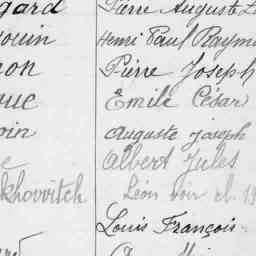 gard Pierre Auguste L
ouin Henri Paul Raym
on Pierre Joseph
oue Émile César
oin Auguste Joseph
e Albert Jules
khovvitch Léon voir el 19
Louis François